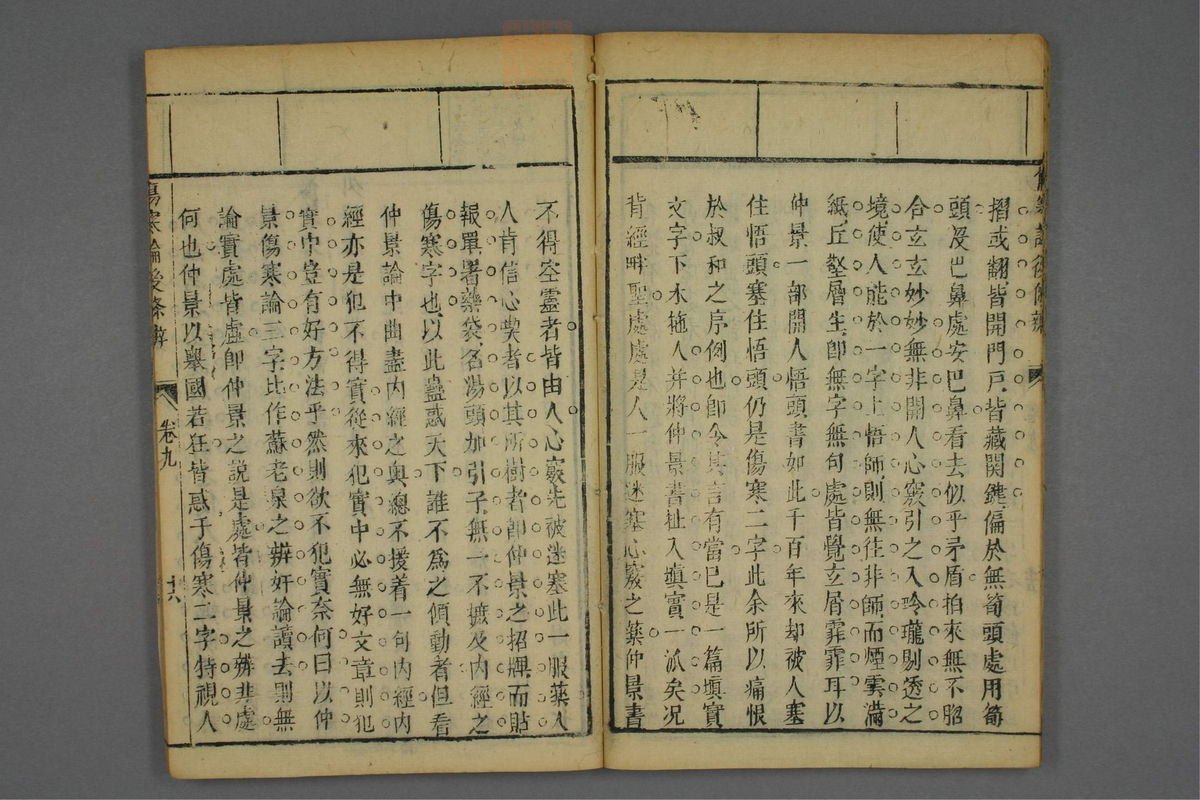 摺或翻皆開門戶皆藏関鍵偏於無筍頭處用筍
頭沒巴鼻處安巴鼻看去似乎矛盾拍來無不脗
合玄玄妙妙無非開人心竅引之入玲瓏剔透之
境使人能於一字上悟師則無徃非師而煙雲滿
紙丘壑層生卽無字無句處皆覺玄屑霏霏耳以
仲景一部開人悟頭書如此千百年來却被人塞
住悟頭塞住悟頭仍是傷寒二字此余所以痛恨
於叔和之序例也卽令其言有當已是一篇塡實
文字下水拖人并將仲景書扯入塡實一派矣况
背經畔聖處處是人一服迷塞心竅之藥仲景書
不得空靈者皆由人心竅先被迷塞此一服藥人
人肯信心喫者以其所樹者卽仲景之招牌而貼
報單署藥袋名湯頭加引子無一不摭及內經之
傷寒字也以此蠱惑天下誰不爲之傾動者但看
仲景論中曲盡內經之奥總不援着一句內經內
經亦是犯不得實從來犯實中必無好文章則犯
實中豈有好方法乎然則欲不犯實奈何曰以仲
景傷寒論三字比作蘇老泉之辨奸論讀去則無
論實處皆虛卽仲景之說是處皆仲景之辨非處
何也仲景以舉國若狂皆惑于傷寒二字特視人
傷寒論後條辨
卷九
十六